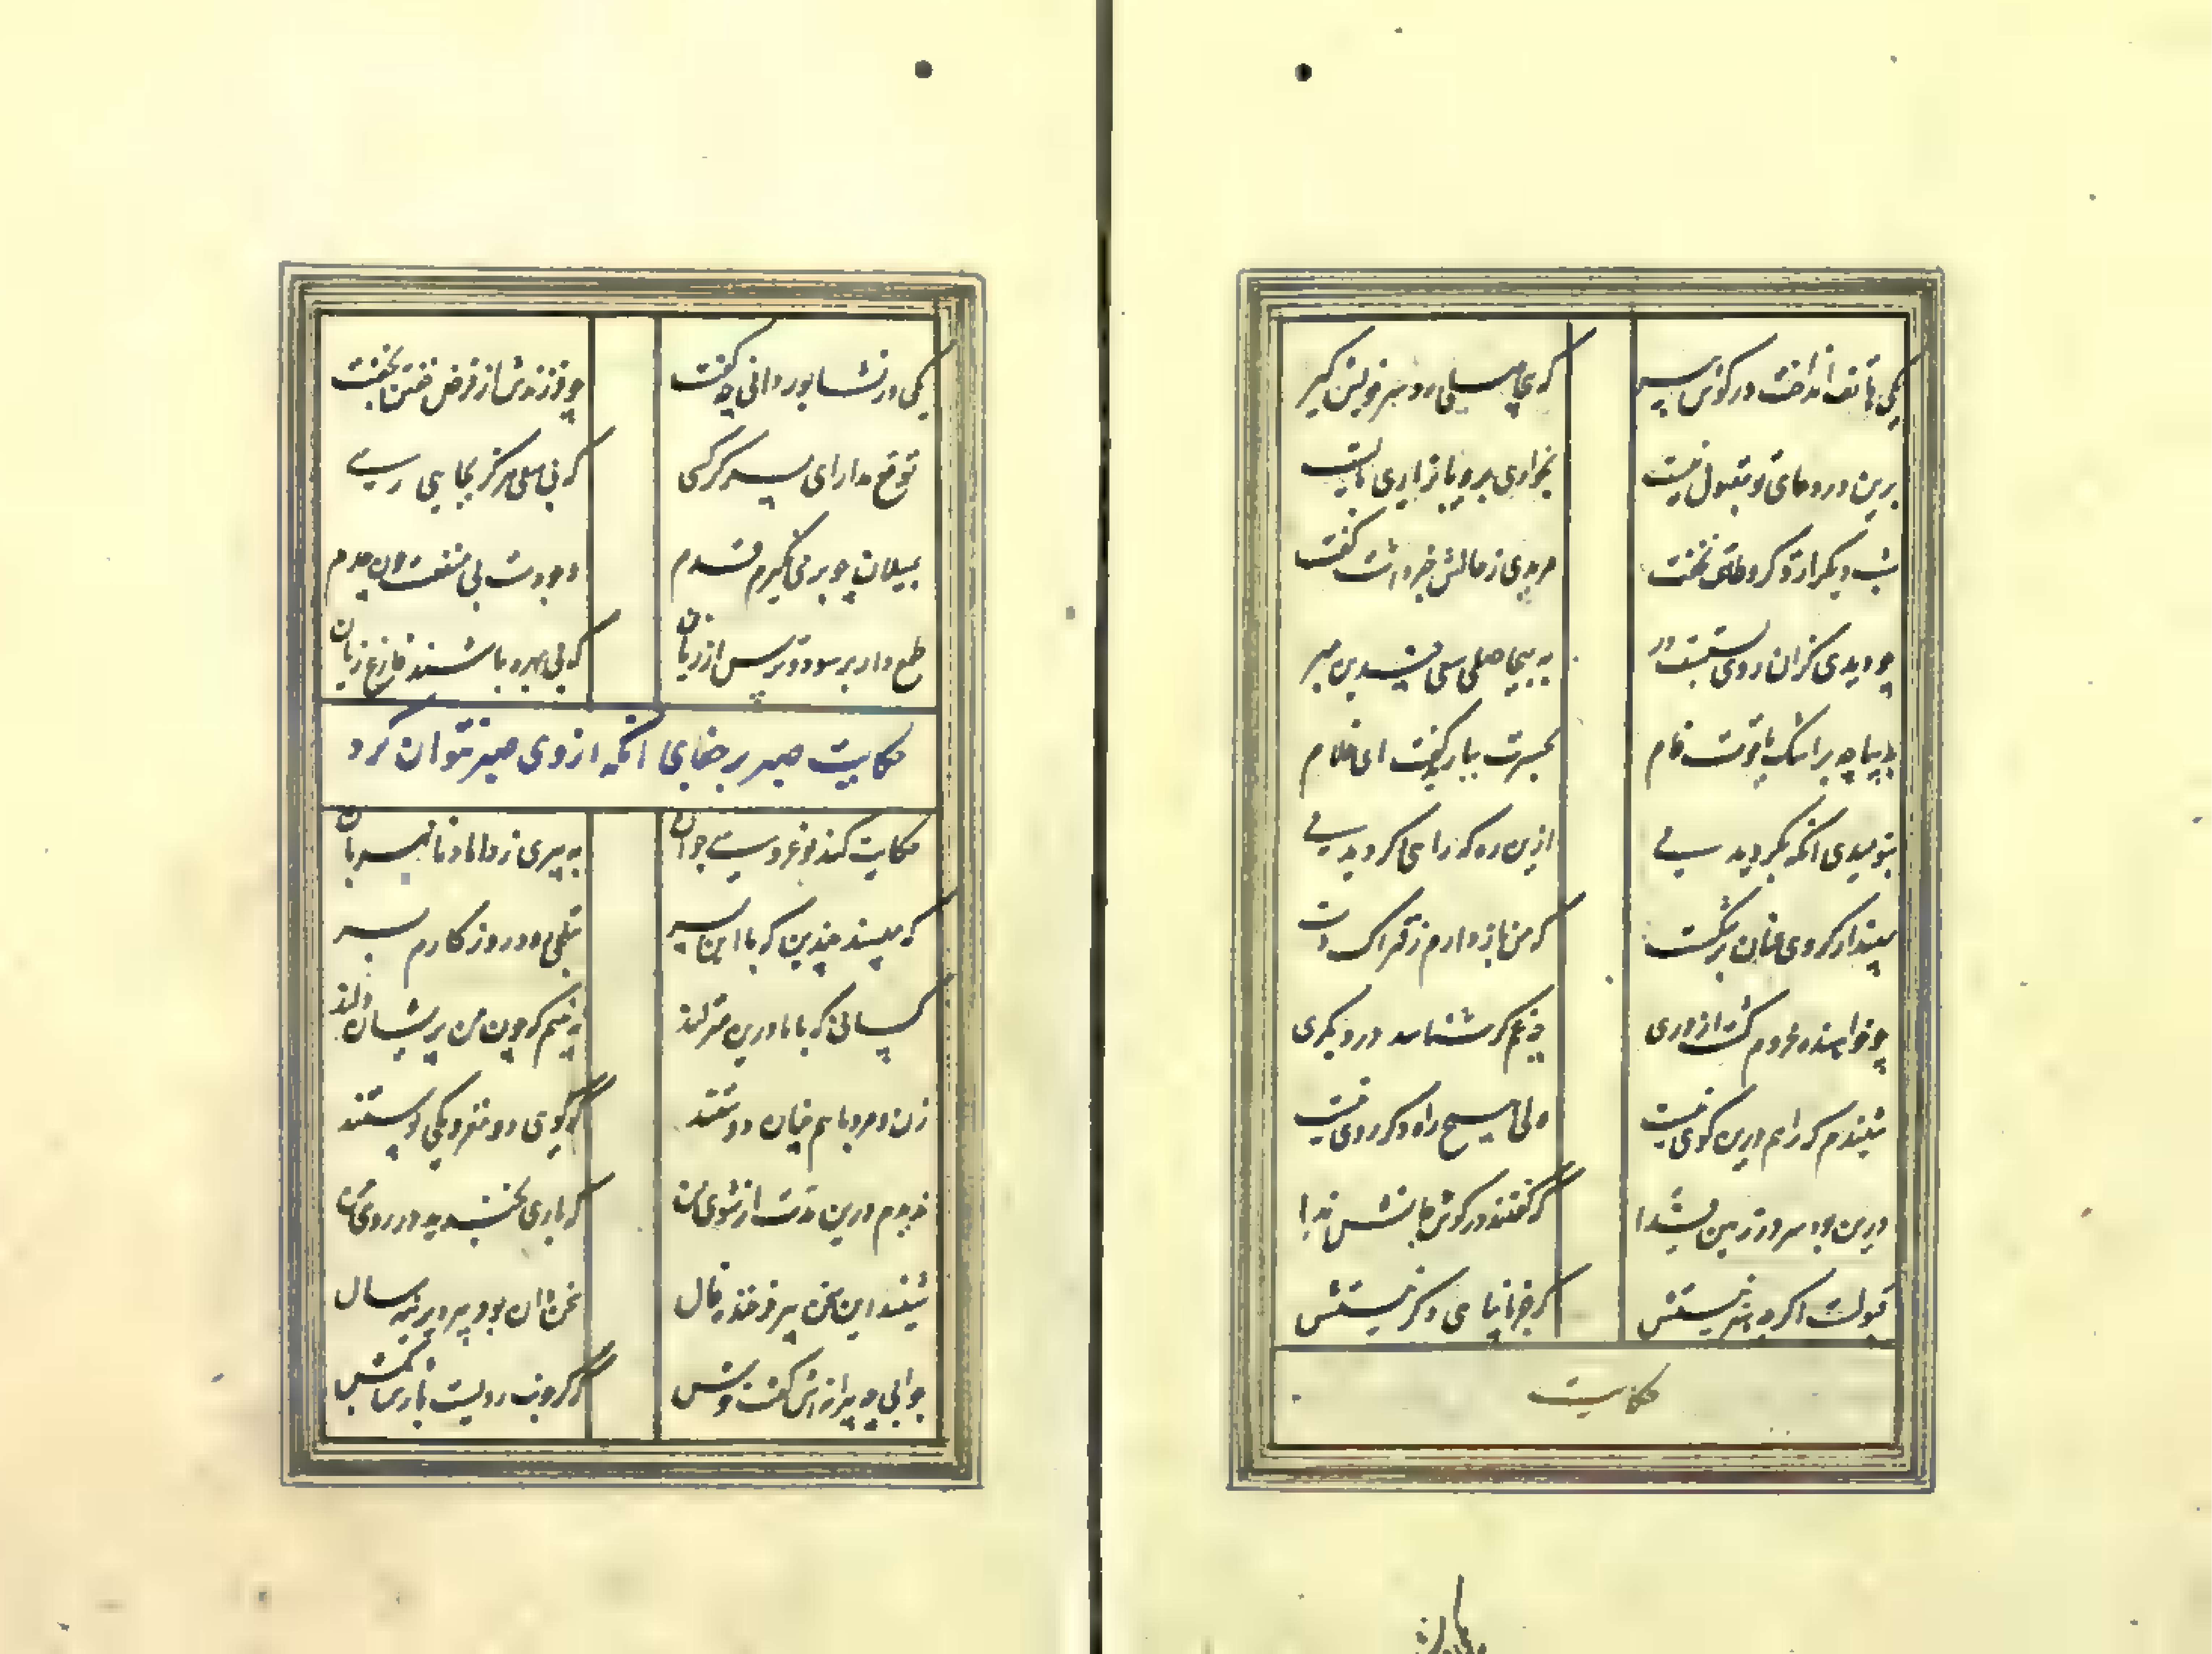 یکی هاتف انداخت در گوش پیر که بیحاصلی رو سر خویش گیر
برین در دعای تو مقبول نیست بخواری برو یا بزاری بایست
شب دیگر از ذکر و طاعت نخفت مریدی ز حالش خبر داشت گفت
چو دیدی کزان روی بستست در به بیحاصلی سعی چندین مبر
بدیباچه بر اشک یاقوت فام بحسرت ببارید و گفت ای غلام
بنومیدی آنگه بگردیدمی ازین ره که راهی دگر دیدمی
مپندار گر وی عنان بر شکست که من باز دارم ز فتراک دست
چو خواهنده محروم گشت از دری چه غم گر شناسد در دیگری
شنیدم که راهم درین کوی نیست ولی هیچ راه دگر روی نیست
درین بود سر در زمین فدا که گفتند در گوش جانش ندا
قبولست اگرچه هنر نیستش که جز ما پناهی دگر نیستش
حکایت
یکی در نشابور دانی چه گفت چو فرزندش از فرض خفتن بخفت
توقع مدار ای پسر گر کسی که بی سعی هرگز بجایی رسی
سمیلان چو بر می نگیرد قدم وجودیست بی منفعت چون عدم
طمع دار سود و بترس از زیان که بی بهره باشند فارغ زیان
حکایت صبر بر جفای آنکه ازوی صبر نتوان کرد
حکایت کند نوعروسی جوان به پیری ز داماد نامهربان
که مپسند چندین که با این پسر بتلخی رود روزگارم بسر
کسانی که با ما درین منزلند نه بینم که چون من پریشان دلند
زن و مرد با هم چنان دوستند که گویی دو مغز و یکی پوستند
ندیدم درین مدت از شوی من که باری بخندید در روی من
شنید این سخن پیر فرخنده فال سخندان بود پیر دیرینه سال
جوابی چه پیرانه اش گفت خوش که گر خوب رویست بارش بکش